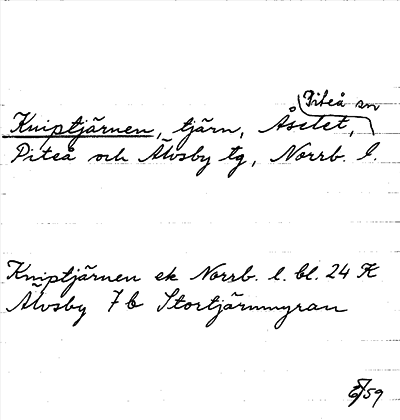 Piteå sn
Kniptjärnen, tjärn, Åselet,
Piteå och Älvsby tg, Norrb. l.
Kniptjärnen ek Norrb. l. bl. 24 K
Älvsby 7 b Stortjärnmyran
59